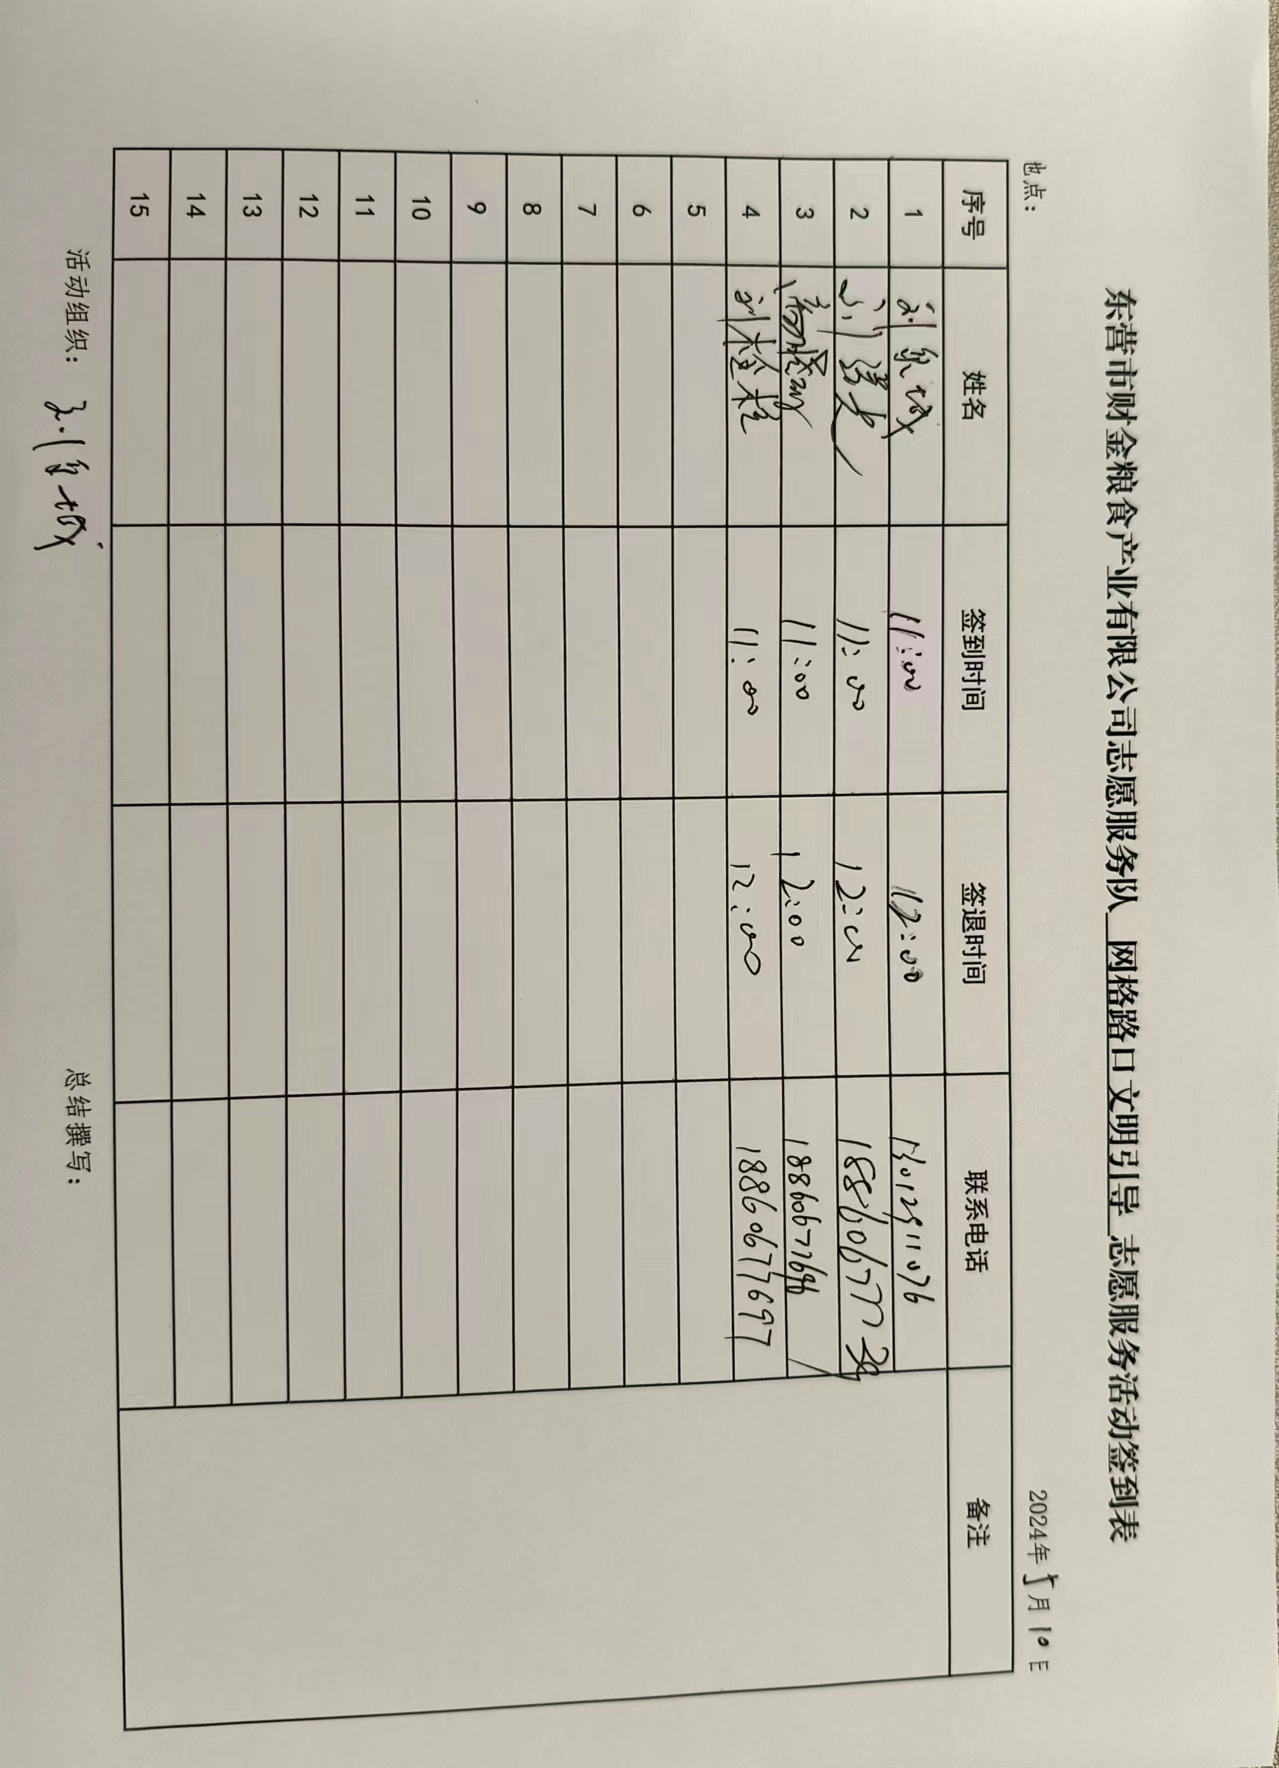 东营市财金粮食产业有限公司志愿服务队 网格路口文明引导 志愿服务活动签到表
地点： 2024年5月10日
序号 姓名 签到时间 签退时间 联系电话 备注
1 11:00 12:00
2 11:00 12:00
3 11:00 12:00 18860677696
4 刘栓柱 11:00 12:00 18860677697
5
6
7
8
9
10
11
12
13
14
15
活动组织： 总结撰写：